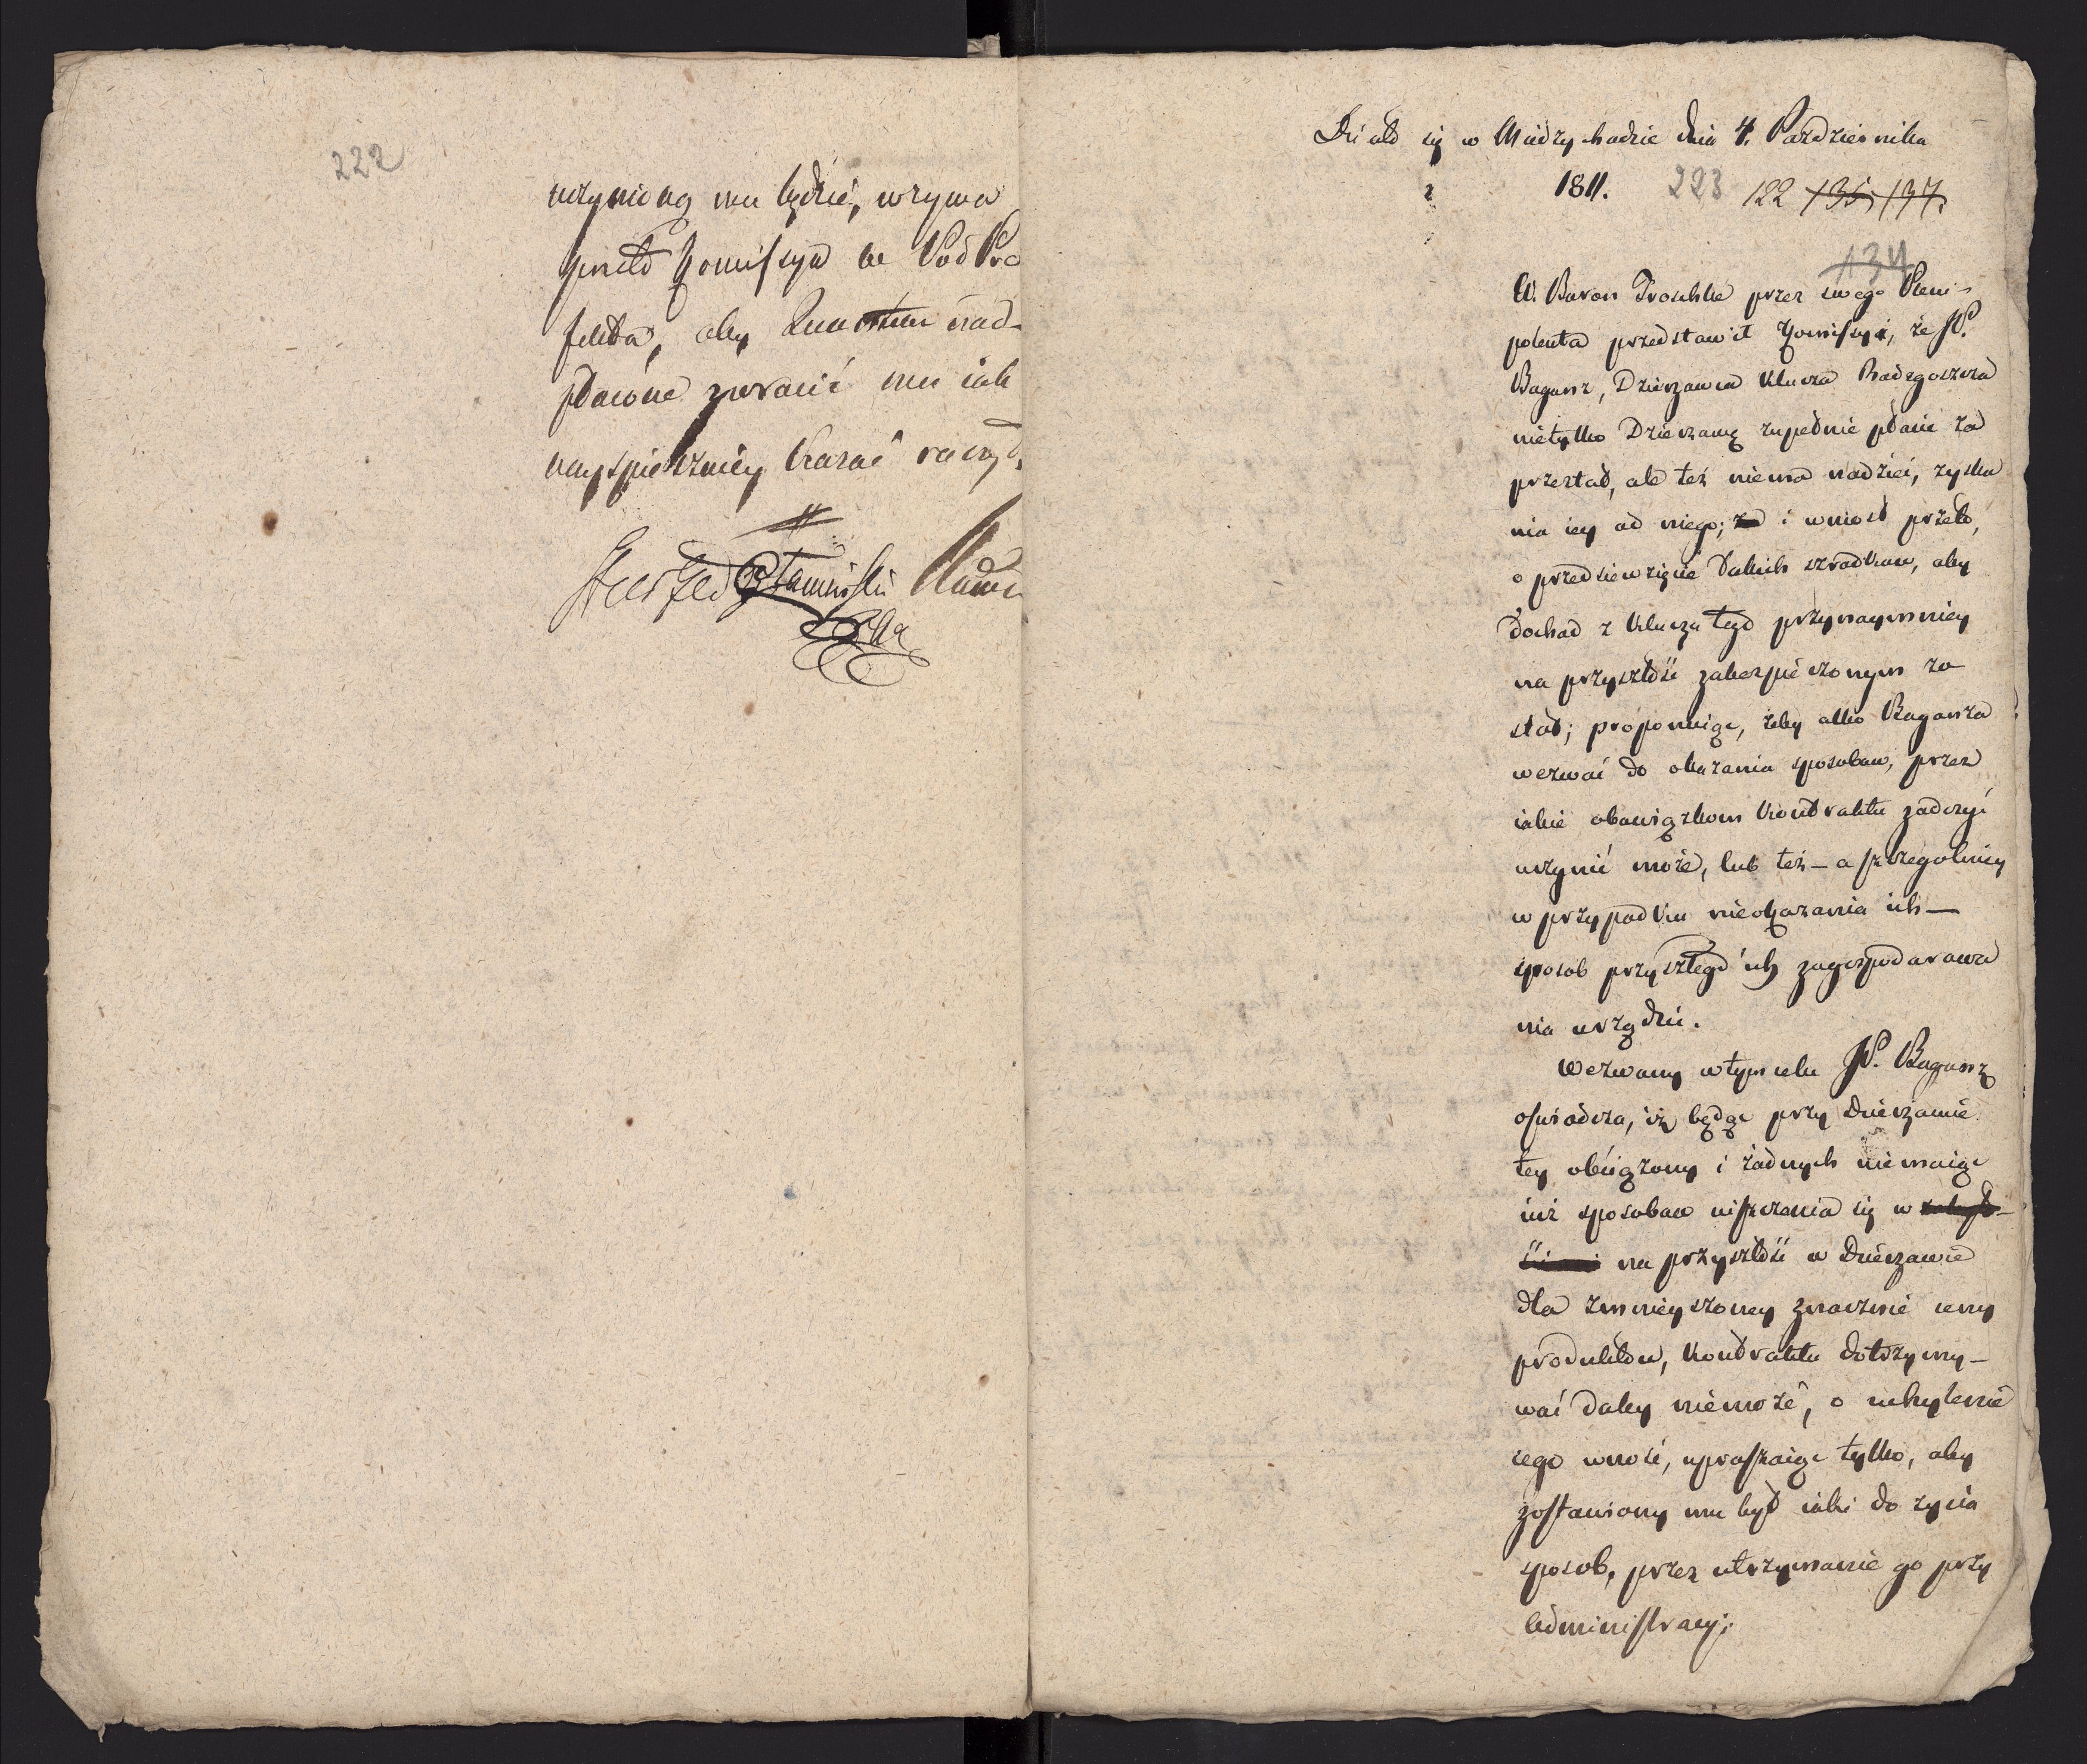 222
uczynioną mu będzie, wzywa
przeto Kommissya W. Pod Pre
fekta, aby Quantum nad-
płacone zwrócić mu iak
nayspieszniey kazać raczył.
Działo się w Międzychodzie dnia 4. Października
1811. 223 122 135. 137.
134
W. Baron Troschke przez swego Pleni-
potenta przedstawił Kommissyi, że JP.
Bagansz, Dzierzawca Klucza Radzgoszcza
nietylko Dzierzawę zupełnie płacić za
przestał, ale też niema nadziei, zyska
nia iey od niego; za i wniosł przeto,
o przedsiewzięcie takich szrodkow, aby
dochod z Klucza tego przynaymniey
na przyszłość zabezpieczonym zo
stał; proponuiąc, żeby albo Bagansza
wezwać do okazania sposobow, przez
iakie obowiązkom Kontraktu zadosyć
uczynić może, lub też – a szczegolniey
w przypadku nieokazania ich –
sposob przyszłego ich zagospodarowa
nia urządzić.
Wezwany w tym celu JP. Bagansz
oswiadcza, iż będąc przy Dzierzawie
tey obciążony i żadnych niemaiąc
iuż sposobow uiszczenia się w
na przyszłość w Dzierzawie
dla zmnieyszoney znacznie ceny
produktow, Kontraktu dotrzymy-
wać daley niemoże, o uchylenie
iego wnosi, upraszaiąc tylko, aby
zostawiony mu był iaki do życia
sposob, przez utrzymanie go przy
Administracyi.